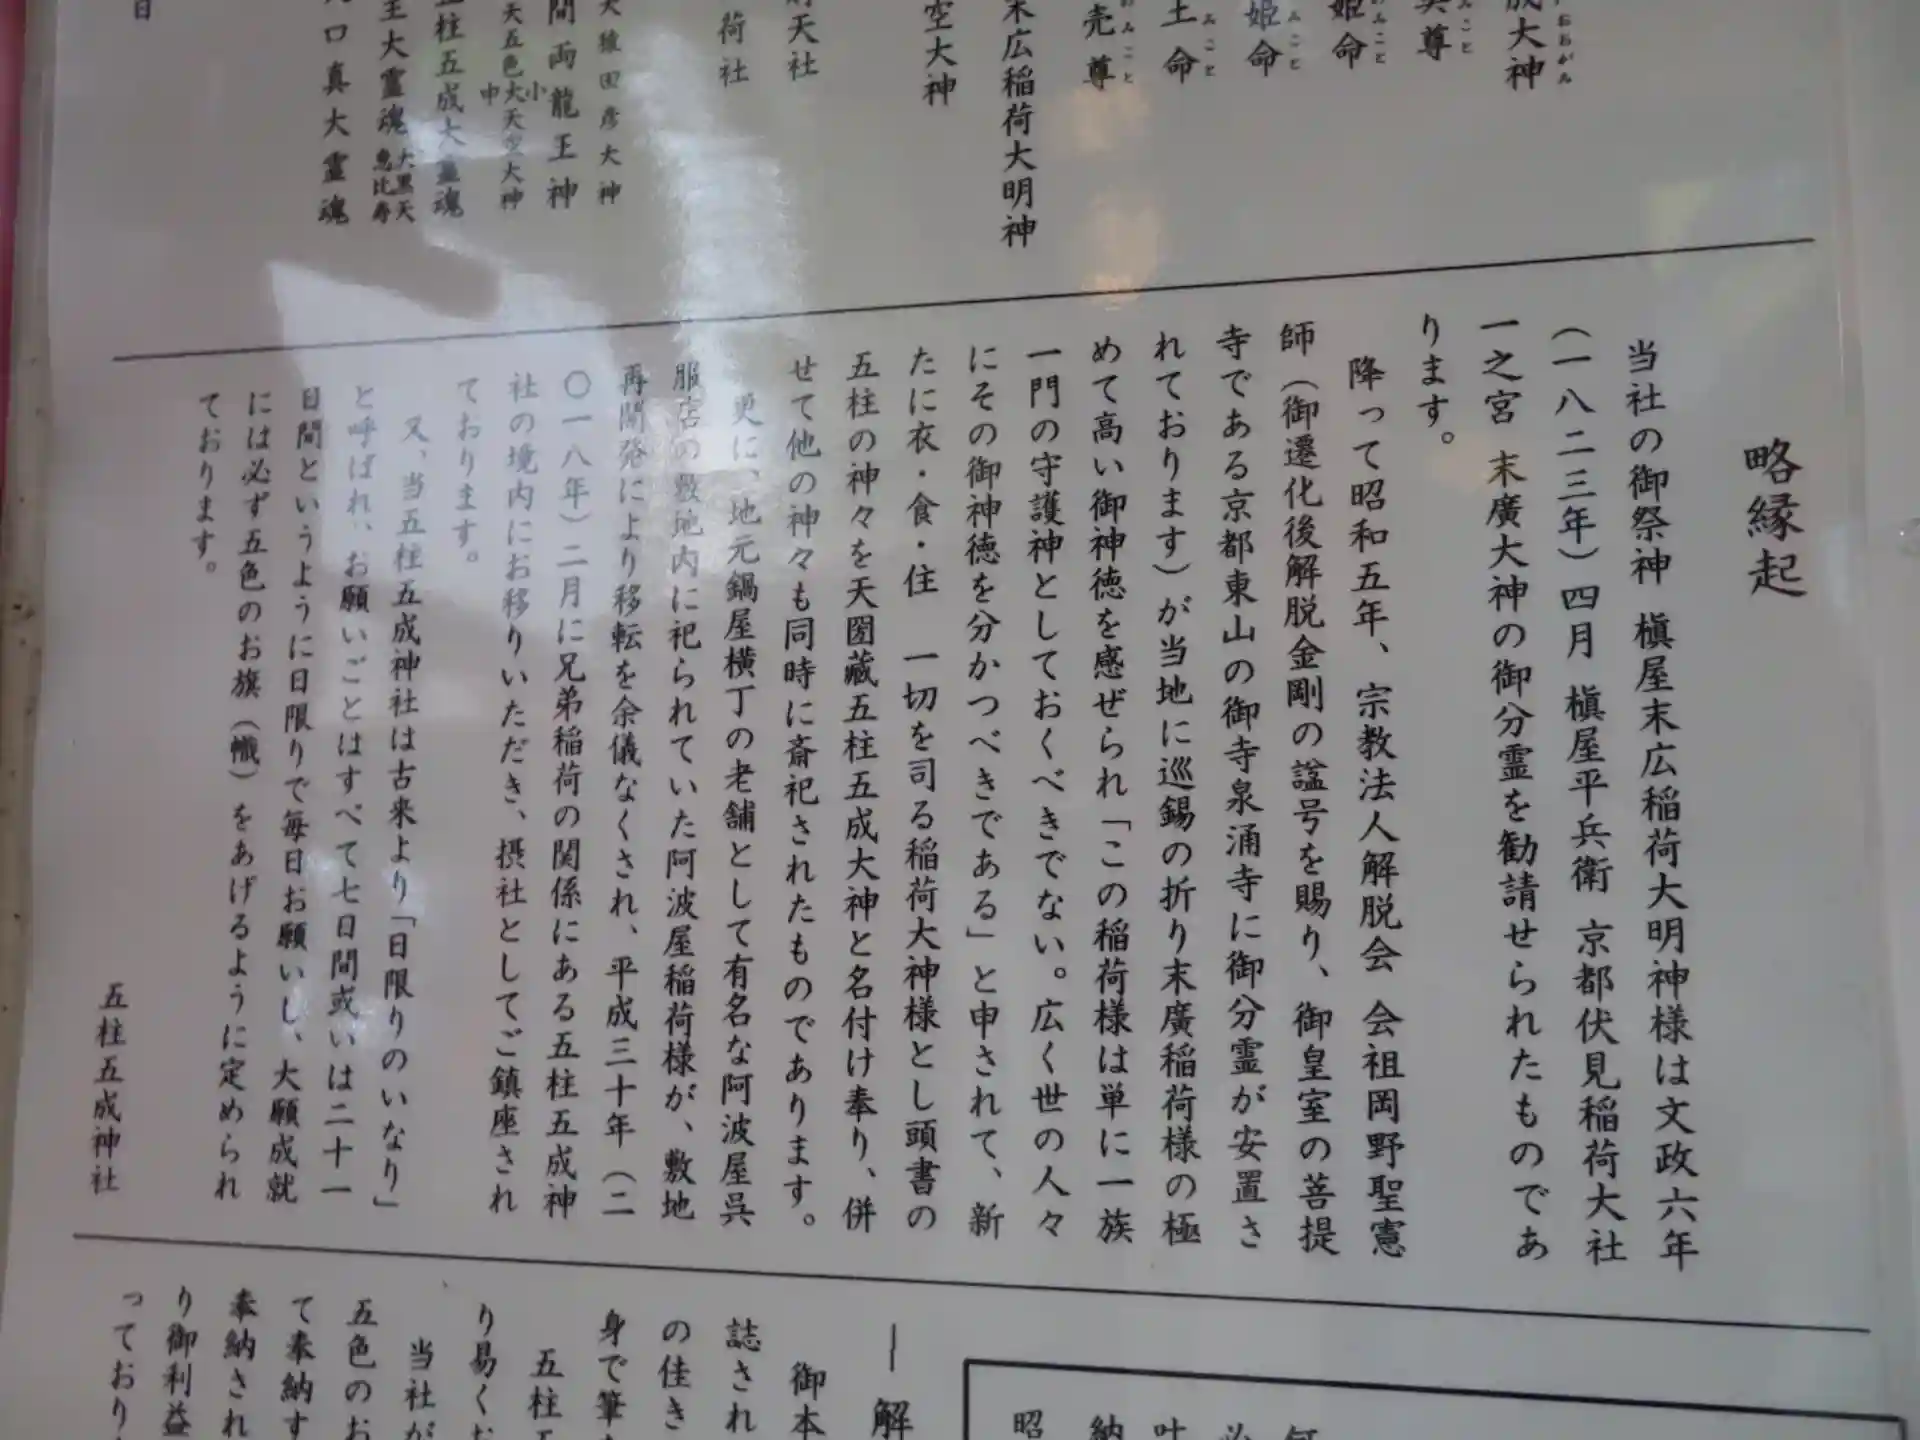 成大神
おおがみ
尊
みこと
姫命
みこと
姫命
みこと
土命
みこと
売尊
みこと
末広稲荷大明神
空大神
天社
荷社
大神
間両龍王神
天五色大天空大神
小
中
柱五成大霊魂
王大霊魂
大黒天
恵比寿
口真大霊魂
日
略縁起
当社の御祭神 槇屋末広稲荷大明神様は文政六年
(一八二三年)四月 槇屋平兵衛 京都伏見稲荷大社
一之宮 末廣大神の御分霊を勧請せられたものであ
ります。
降って昭和五年、宗教法人解脱会 会祖岡野聖憲
師(御遷化後解脱金剛の諡号を賜り、御皇室の菩提
寺である京都東山の御寺泉涌寺に御分霊が安置さ
れております)が当地に巡錫の折り末廣稲荷様の極
めて高い御神徳を感ぜられ「この稲荷様は単に一族
一門の守護神としておくべきでない。広く世の人々
にその御神徳を分かつべきである」と申されて、新
たに衣・食・住 一切を司る稲荷大神様とし頭書の
五柱の神々を天圀藏五柱五成大神と名付け奉り、併
せて他の神々も同時に斎祀されたものであります。
更に、地元鍋屋横丁の老舗として有名な阿波屋呉
服店の敷地内に祀られていた阿波屋稲荷様が、敷地
再開発により移転を余儀なくされ、平成三十年(二
〇一八年)二月に兄弟稲荷の関係にある五柱五成神
社の境内にお移りいただき、摂社としてご鎮座され
ております。
又、当五柱五成神社は古来より「日限りのいなり」
と呼ばれ、お願いごとはすべて七日間或いは二十一
日間というように日限りで毎日お願いし、大願成就
には必ず五色のお旗(幟)をあげるように定められ
ております。
五柱五成神社
解
御本
誌され
の佳き
身で筆
五柱
り易く
当社が
五色のお
て奉納す
奉納され
り御利益
っており
昭
納
叶
必